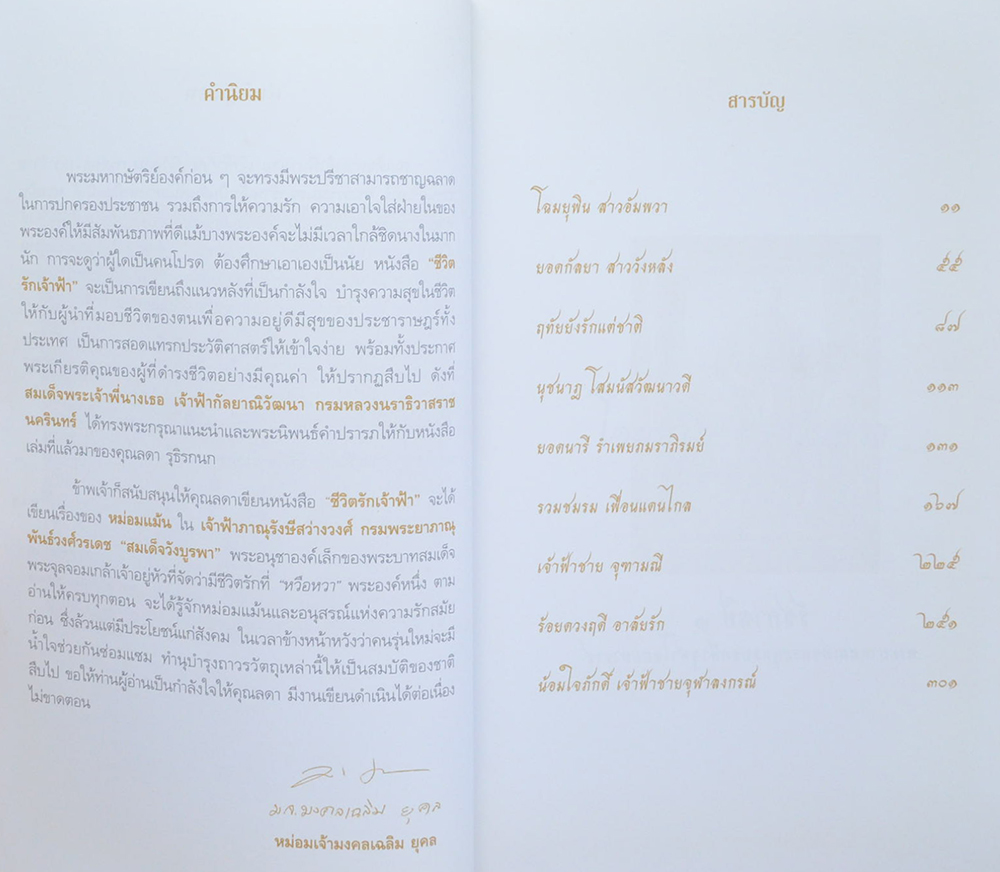 คำนิยม
พระมหากษัตริย์องค์ก่อน ๆ จะทรงมีพระปรีชาสามารถชาญฉลาด
ในการปกครองประชาชน รวมถึงการให้ความรัก ความเอาใจใส่ฝ่ายในของ
พระองค์ให้มีสัมพันธภาพที่ดีแม้บางพระองค์จะไม่มีเวลาใกล้ชิดนางในมาก
นัก การจะดูว่าผู้ใดเป็นคนโปรด ต้องศึกษาเอาเองเป็นนัย หนังสือ “ชีวิต
รักเจ้าฟ้า” จะเป็นการเขียนถึงแนวหลังที่เป็นกำลังใจ บำรุงความสุขในชีวิต
ให้กับผู้นำที่มอบชีวิตของตนเพื่อความอยู่ดีมีสุขของประชาราษฎร์ทั้ง
ประเทศ เป็นการสอดแทรกประวัติศาสตร์ให้เข้าใจง่าย พร้อมทั้งประกาศ
พระเกียรติคุณของผู้ที่ดำรงชีวิตอย่างมีคุณค่า ให้ปรากฏสืบไป ดังที่
สมเด็จพระเจ้าพี่นางเธอ เจ้าฟ้ากัลยาณิวัฒนา กรมหลวงนราธิวาสราช
นครินทร์ ได้ทรงพระกรุณาแนะนำและพระนิพนธ์คำปรารภให้กับหนังสือ
เล่มที่แล้วมาของคุณลดา รุธิรกนก
ข้าพเจ้าก็สนับสนุนให้คุณลดาเขียนหนังสือ “ชีวิตรักเจ้าฟ้า” จะได้
เขียนเรื่องของ หม่อมแม้น ใน เจ้าฟ้าภาณุรังษีสว่างวงศ์ กรมพระยาภาณุ
พันธ์วงศ์วรเดช “สมเด็จวังบูรพา” พระอนุชาองค์เล็กของพระบาทสมเด็จ
พระจุลจอมเกล้าเจ้าอยู่หัวที่จัดว่ามีชีวิตรักที่ “หวือหวา” พระองค์หนึ่ง ตาม
อ่านให้ครบทุกตอน จะได้รู้จักหม่อมแม้นและอนุสรณ์แห่งความรักสมัย
ก่อน ซึ่งล้วนแต่มีประโยชน์แก่สังคม ในเวลาข้างหน้าหวังว่าคนรุ่นใหม่จะมี
น้ำใจช่วยกันซ่อมแซม ทำนุบำรุงถาวรวัตถุเหล่านี้ให้เป็นสมบัติของชาติ
สืบไป ขอให้ท่านผู้อ่านเป็นกำลังใจให้คุณลดา มีงานเขียนดำเนินได้ต่อเนื่อง
ไม่ขาดตอน
ม.จ.มงคลเฉลิม ยุคล
หม่อมเจ้ามงคลเฉลิม ยุคล
สารบัญ
โฉมยุพิน สาวอัมพวา ๑๑
ยอดกัลยา สาววังหลัง ๕๕
ฤทัยยังรักแต่ชาติ ๘๗
นุชนาฎ โสมนัสวัฒนาวดี ๑๑๓
ยอดนารี รำเพยภมราภิรมย์ ๑๓๑
รวมชมรม เพื่อนแดนไกล ๑๖๗
เจ้าฟ้าชาย จุฑามณี ๒๒๕
ร้อยดวงฤดี อาลัยรัก ๒๕๑
น้อมใจภักดิ์ เจ้าฟ้าชายจุฬาลงกรณ์ ๓๐๑